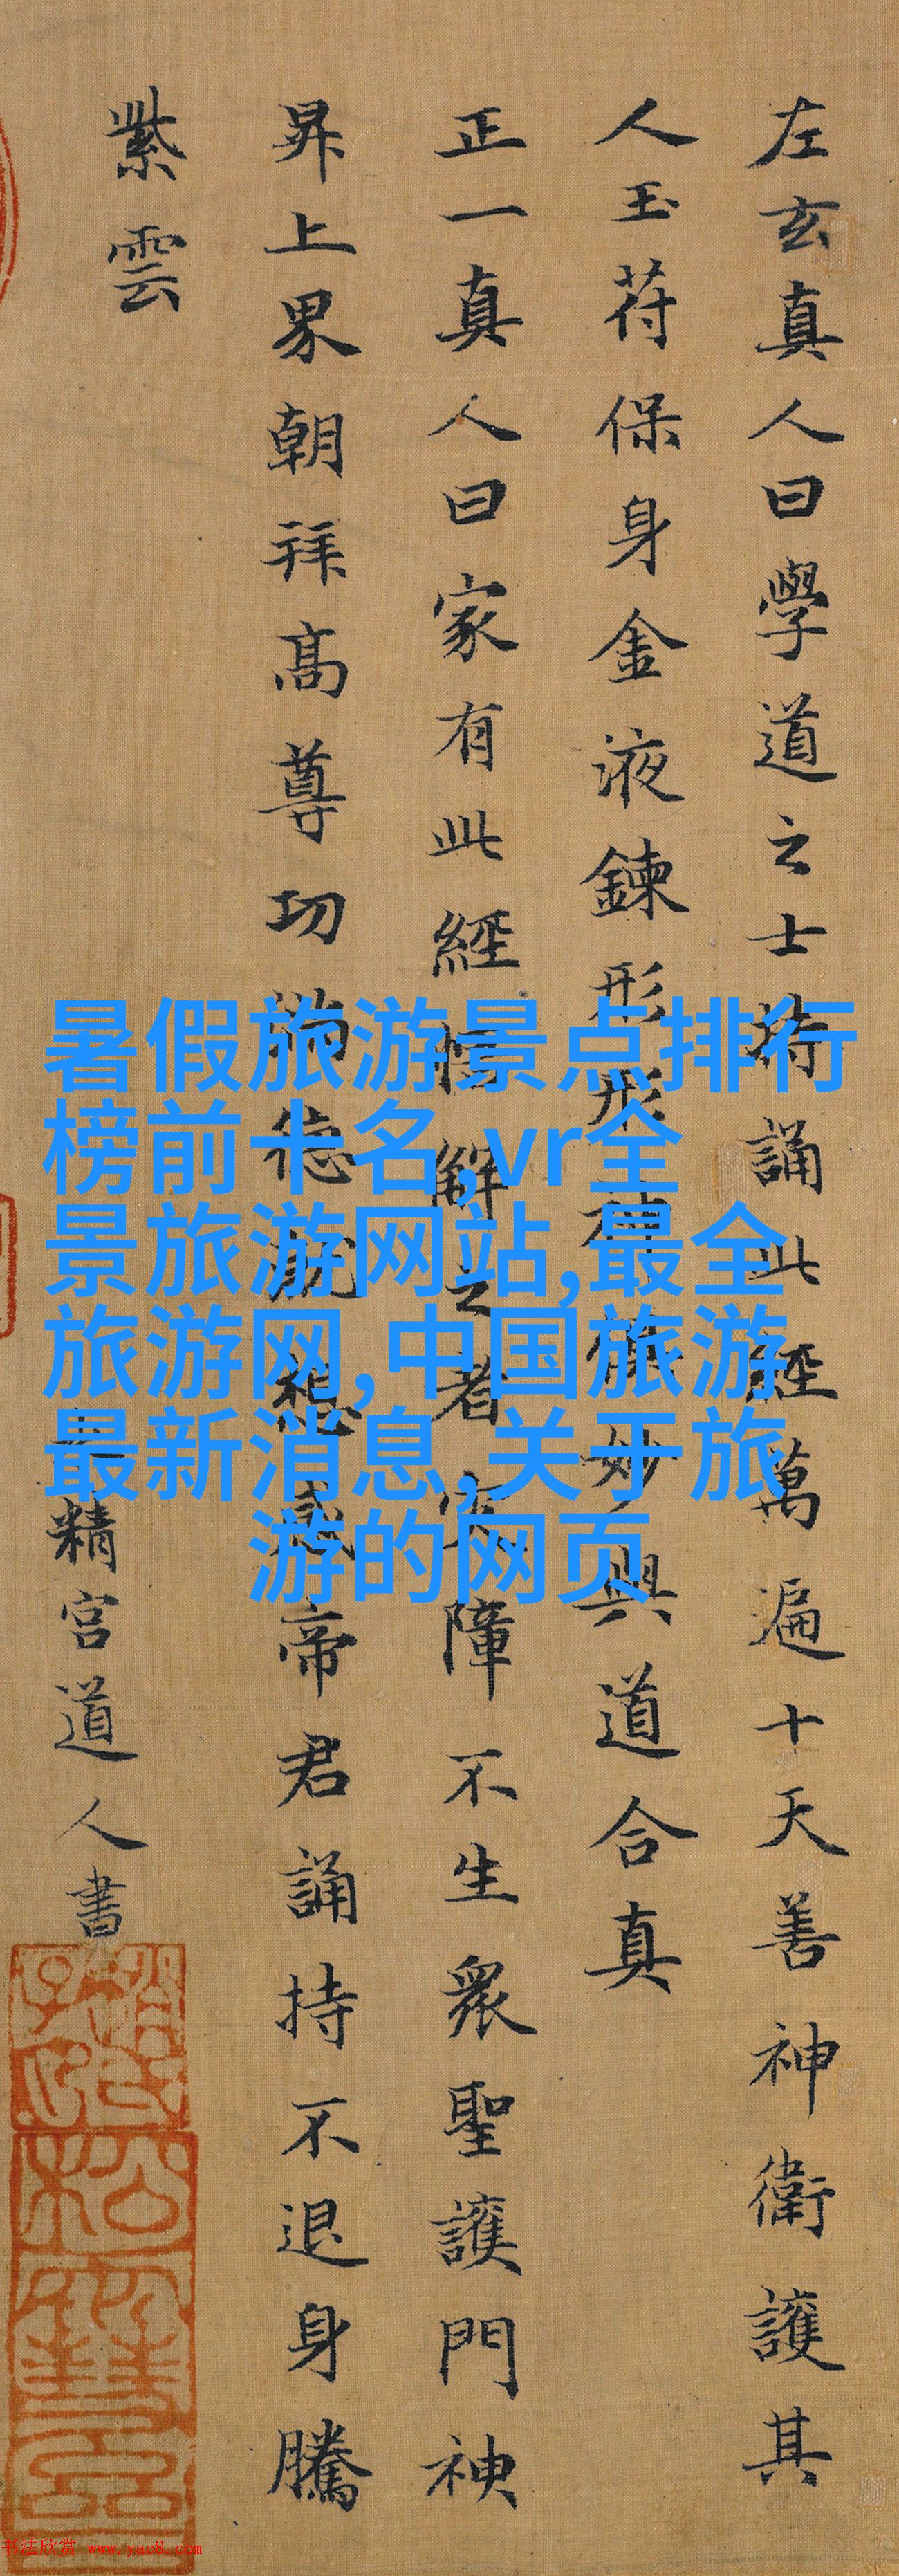 左玄真人曰學道之士持誦此經萬遍十天善神衛護其
人玉苻保身金液鍊形形神俱妙與道合真
正一真人曰家有此經悟解之者灾障不生衆聖護門神
昇上界朝拜高尊功滿德就想感帝君誦持不退身騰
紫雲
精宮道人書
趙氏子昂
暑假旅游景点排行
榜前十名,vr全
景旅游网站,最全
旅游网,中国旅游
最新消息,关于旅
游的网页
书法欣赏 www.yac8.com